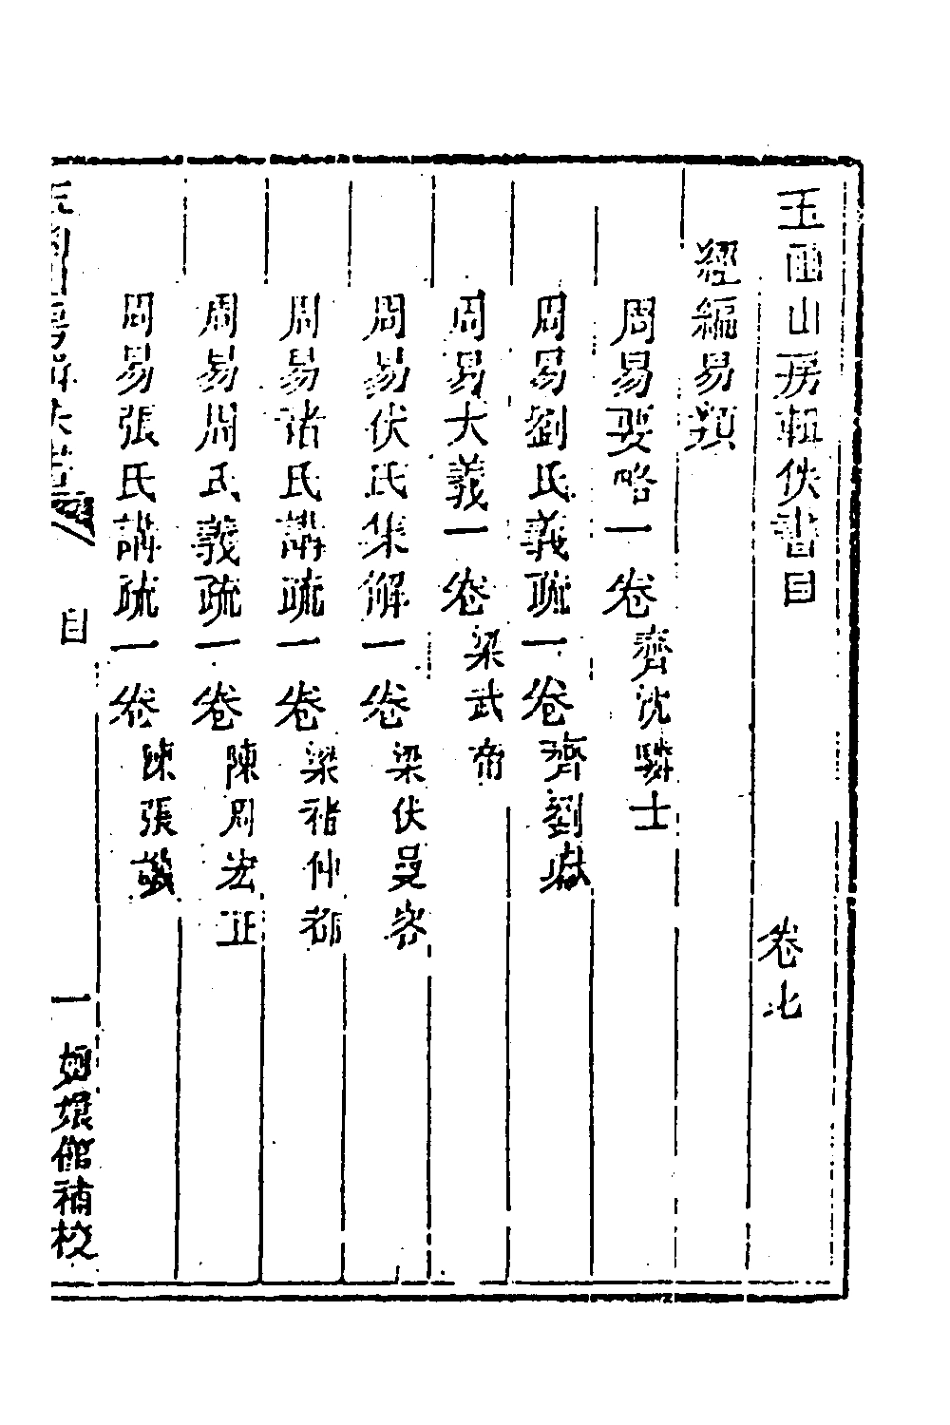 玉函山房輯佚書目 卷七
經編易類
周易要略一卷 齊沈驎士
周易劉氏義疏一卷 齊劉瓛
周易大義一卷 梁武帝
周易伏氏集解一卷 梁伏曼容
周易褚氏講疏一卷 梁褚仲都
周易周氏義疏一卷 陳周宏正
周易張氏講疏一卷 陳張譏
玉函山房輯佚書 目 一 嫏嬛館補校